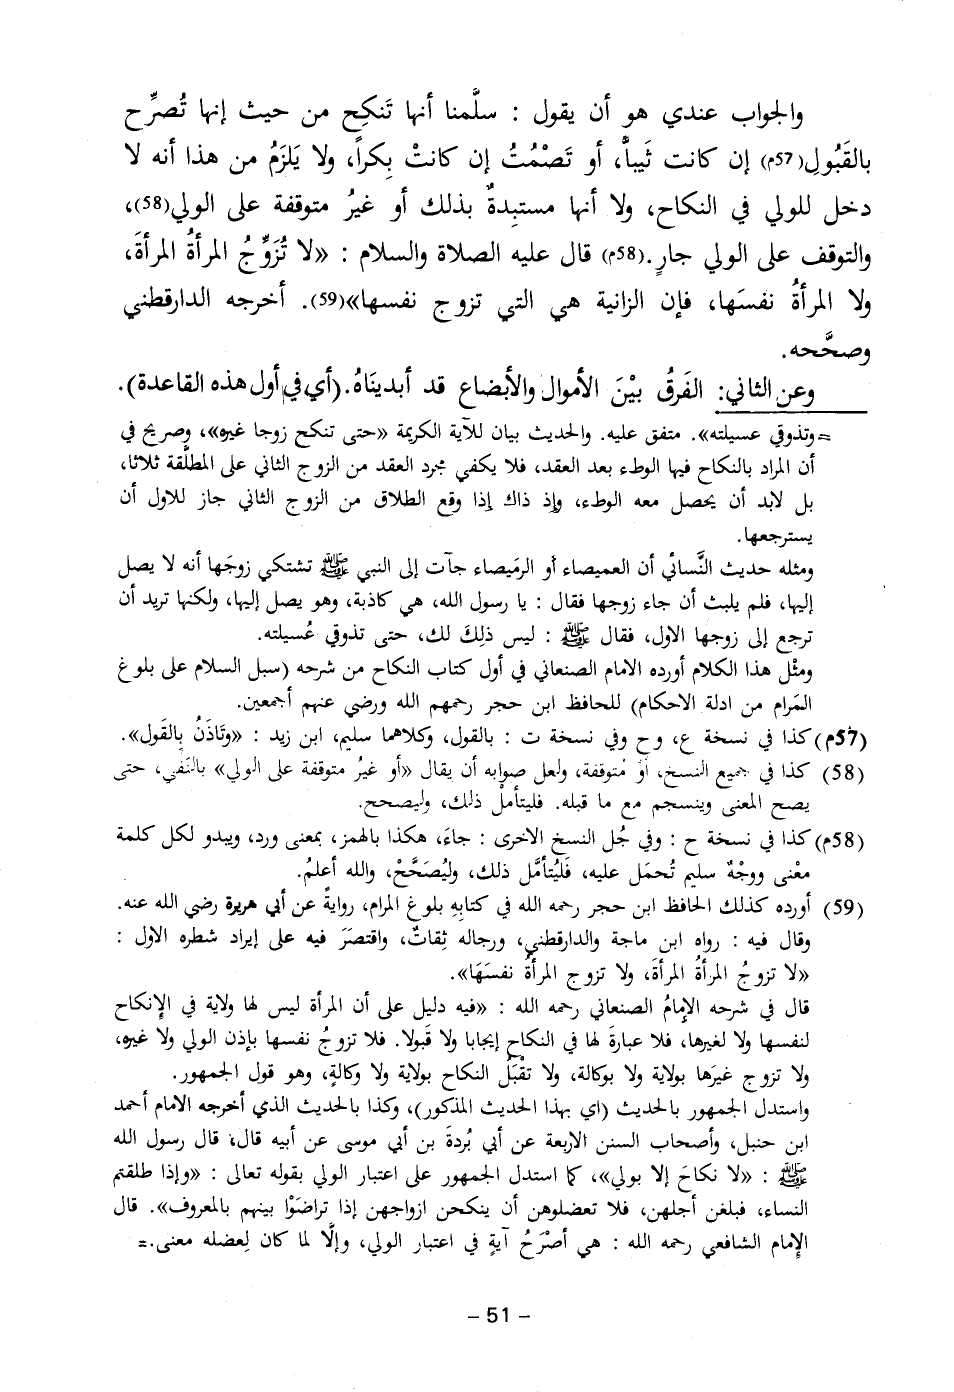 والجواب عندي هو أن يقول : سلَّمنا أنها تَنكِح من حيث إنها تُصرِّح
بالقَبُولِ(57م) إن كانت ثَيباً، أو تَصْمُتُ إن كانتْ بِكراً، ولا يَلزَمُ من هذا أنه لا
دخل للولي في النكاح، ولا أنها مستبِدةٌ بذلك أو غيرُ متوقفة على الولي(58)،
والتوقف على الولي جارٍ.(58م) قال عليه الصلاة والسلام : «لا تُزَوِّجُ المرأةُ المرأةَ،
ولا المرأةُ نفسَها، فإن الزانية هي التي تزوج نفسها»(59). أخرجه الدارقطني
وصحَّحه.
وعن الثاني: الفَرقُ بيْنَ الأموال والأبضاع قد أبديناهُ.(أي في أول هذه القاعدة).
=وتذوقي عسيلته». متفق عليه. والحديث بيان للآية الكريمة «حتى تنكح زوجا غيره»، وصريح في
أن المراد بالنكاح فيها الوطء بعد العقد، فلا يكفي مجرد العقد من الزوج الثاني على المطلَّقة ثلاثا،
بل لابد أن يحصل معه الوطء، وإذ ذاك إذا وقع الطلاق من الزوج الثاني جاز للاول أن
يسترجعها.
ومثله حديث النَّسائي أن العميصاء أو الرمَيصاء جآت إلى النبي ﷺ تشتكي زوجَها أنه لا يصل
إليها، فلم يلبث أن جاء زوجها فقال : يا رسول الله، هي كاذبة، وهو يصل إليها، ولكنها تريد أن
ترجع إلى زوجها الاول، فقال ﷺ : ليس ذلِكَ لك، حتى تذوقي عُسيلته.
ومثْل هذا الكلام أورده الامام الصنعاني في أول كتاب النكاح من شرحه (سبل السلام على بلوغ
المَرام من ادلة الاحكام) للحافظ ابن حجر رحمهم الله ورضي عنهم أجمعين.
(57م) كذا في نسخة ع، وح وفي نسخة ت : بالقول، وكلاهما سليم، ابن زيد : «وتَاذَنُ بِالقَول».
(58) كذا في جميع النسخ، أوْ مُتوقفة، ولعل صوابه أن يقال «أو غيرُ متوقفة على الولي» بالنَفي، حتى
يصح المعنى وينسجم مع ما قبله. فليتأملْ ذلك، وليصحح.
(58م) كذا في نسخة ح : وفي جُل النسخ الاخرى : جاءَ، هكذا بالهمز، بمعنى ورد، ويبدو لكل كلمة
معْنى ووجْهٌ سليم تُحمَل عليه، فَليُتأمَّل ذلك، وليُصَحَّحْ، والله أعلمُ.
(59) أورده كذلك الحافظ ابن حجر رحمه الله في كتابِهِ بلوغ المرام، روايةً عن أبي هريرة رضي الله عنه.
وقال فيه : رواه ابن ماجة والدارقطني، ورجاله ثِقاتٌ، واقتصَرَ فيه على إيراد شطره الاول :
«لا تزوجُ المرأةُ المرأةَ، ولا تزوج المرأةُ نفسَهَا».
قال في شرحه الإمامُ الصنعاني رحمه الله : «فيه دليل على أن المرأة ليس لها ولاية في الإنكاح
لنفسها ولا لغيرها، فلا عبارةَ لها في النكاح إيجابا ولا قَبولا. فلا تزوجُ نفسها بإذن الولي ولا غيره،
ولا تزوج غيرَها بولاية ولا بوكالة، ولا تقْبَلُ النكاح بولاية ولا وكالةٍ، وهو قول الجمهور.
واستدل الجمهور بالحديث (اي بهذا الحديث المذكور)، وكذا بالحديث الذي أخرجه الامام أحمد
ابن حنبل، وأصحاب السنن الاربعة عن أبي بُردةَ بن أبي موسى عن أبيه قال، قال رسول الله
ﷺ : «لا نكاحَ إلا بولي»، كما استدل الجمهور على اعتبار الولي بقوله تعالى : «وإذا طلقتم
النساء، فبلغن أجلهن، فلا تعضلوهن أن ينكحن ازواجهن إذا تراضَوْا بينهم بالمعروف». قال
الإمام الشافعي رحمه الله : هي أصْرَحُ آيةٍ في اعتبار الولي، وإلَّا لما كان لِعضله معنى.=
- 51 -